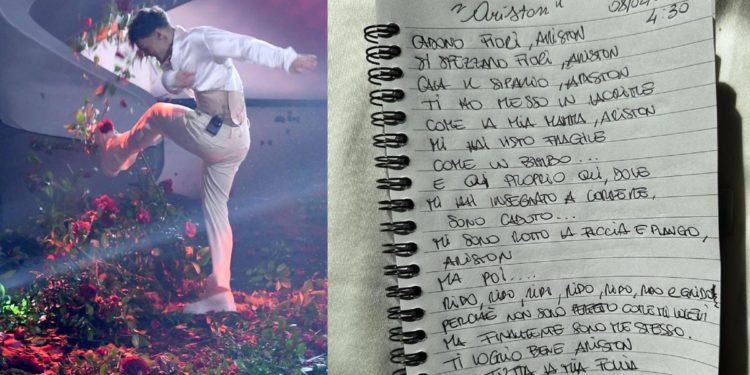 "Ariston"
4:30
CADONO FIORI, ARISTON
SI SPEZZANO FIORI, ARISTON
CALA IL SIPARIO, ARISTON
TI HO MESSO IN LACRIME
COME LA MIA MAMMA, ARISTON
MI HAI VISTO FRAGILE
COME UN BIMBO...
E QUI PROPRIO QUI, DOVE
MI HAI INSEGNATO A CORRERE,
SONO CADUTO...
MI SONO ROTTO LA FACCIA E PIANGO,
ARISTON
MA POI....
RIDO, RIDO, RIDO, RIDO, RIDO, RIDO E GRIDO
PERCHÉ NON SONO COME MI VOLEVI
MA FINALMENTE SONO ME STESSO.
TI VOGLIO BENE ARISTON
TUTTA LA MIA FOLLIA